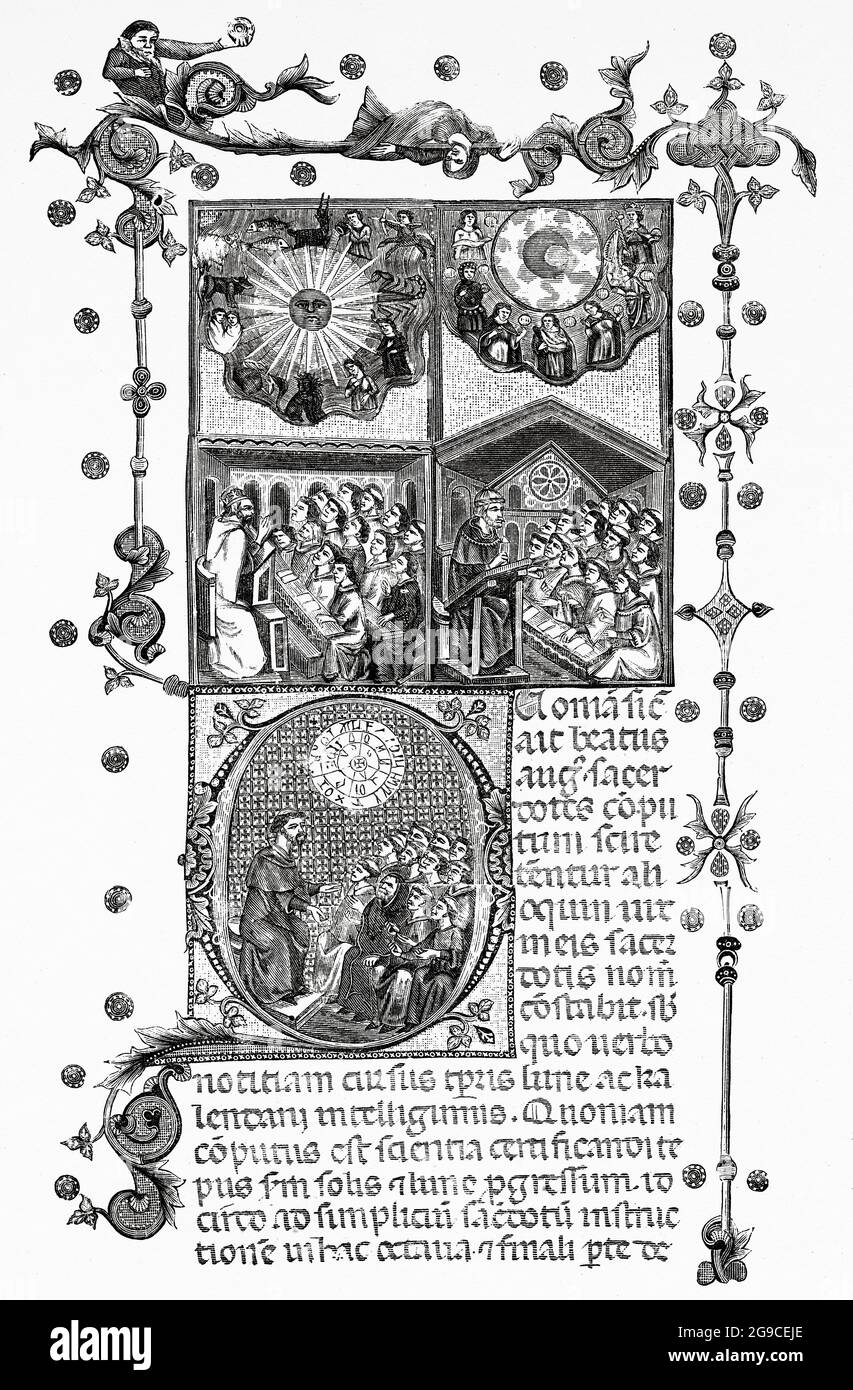 Quoniā sic̄
ait beatus
aug⁹. sacer
dotes cōpu
tum scire
tēnentur ali
oquin uix
in eis sacer
dotis nom̄
cōstabit. sb̄
quo uerbo
notitiam cursus tp̄ris lune ac ka
lendarij intelligimus. Quoniam
cōputus est scientia certificandi tē
pus s̄m solis ⁊ lune p̱gressum. id
circo ad simpliciū sac̄dotū instruc
tionē in hac octaua ⁊ finali ꝑte de
alamy
Image ID: 2G9CEJE
www.alamy.com